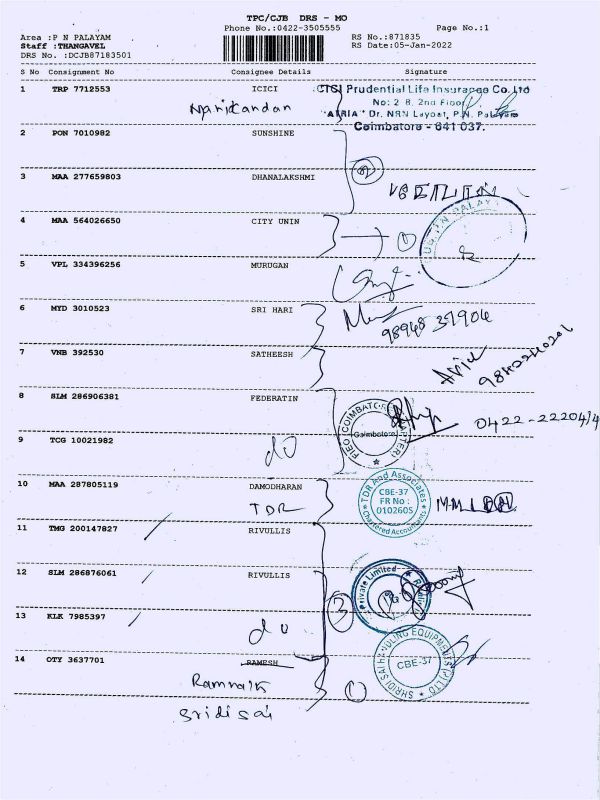 TPC/CJB DRS - MO
Phone No.:0422-3505555 Page No.:1
Area :P N PALAYAM RS No.:871835
Staff :THANGAVEL RS Date:05-Jan-2022
DRS No. :DCJB87183501
S No Consignment No Consignee Details Signature
1 TRP 7712553 ICICI
ICICI Prudential Life Insurance Co.Ltd
No: 2 B, 2nd Floor
"ATRIA" Dr. NRN Layout, P.N. Palayam
Coimbatore - 641 037.
2 PON 7010982 SUNSHINE
2
3 MAA 277659803 DHANALAKSHMI
4 MAA 564026650 CITY UNIN
1
5 VPL 334396256 MURUGAN
6 MYD 3010523 SRI HARI
98948 37904
7 VNB 392530 SATHEESH
8 SLM 286906381 FEDERATIN
Coimbatore
9 TCG 10021982
do
10 MAA 287805119 DAMODHARAN
TDR
TDR And Associates
CBE-37
FR No :
010260S
Chartered Accountants
11 TMG 200147827 RIVULLIS
12 SLM 286876061 RIVULLIS
Private Limited
3
13 KLK 7985397
do
14 OTY 3637701 RAMESH
SHRIDI SAI HANDLING EQUIPMENTS (P) LTD
CBE-37
1
Sridi sai